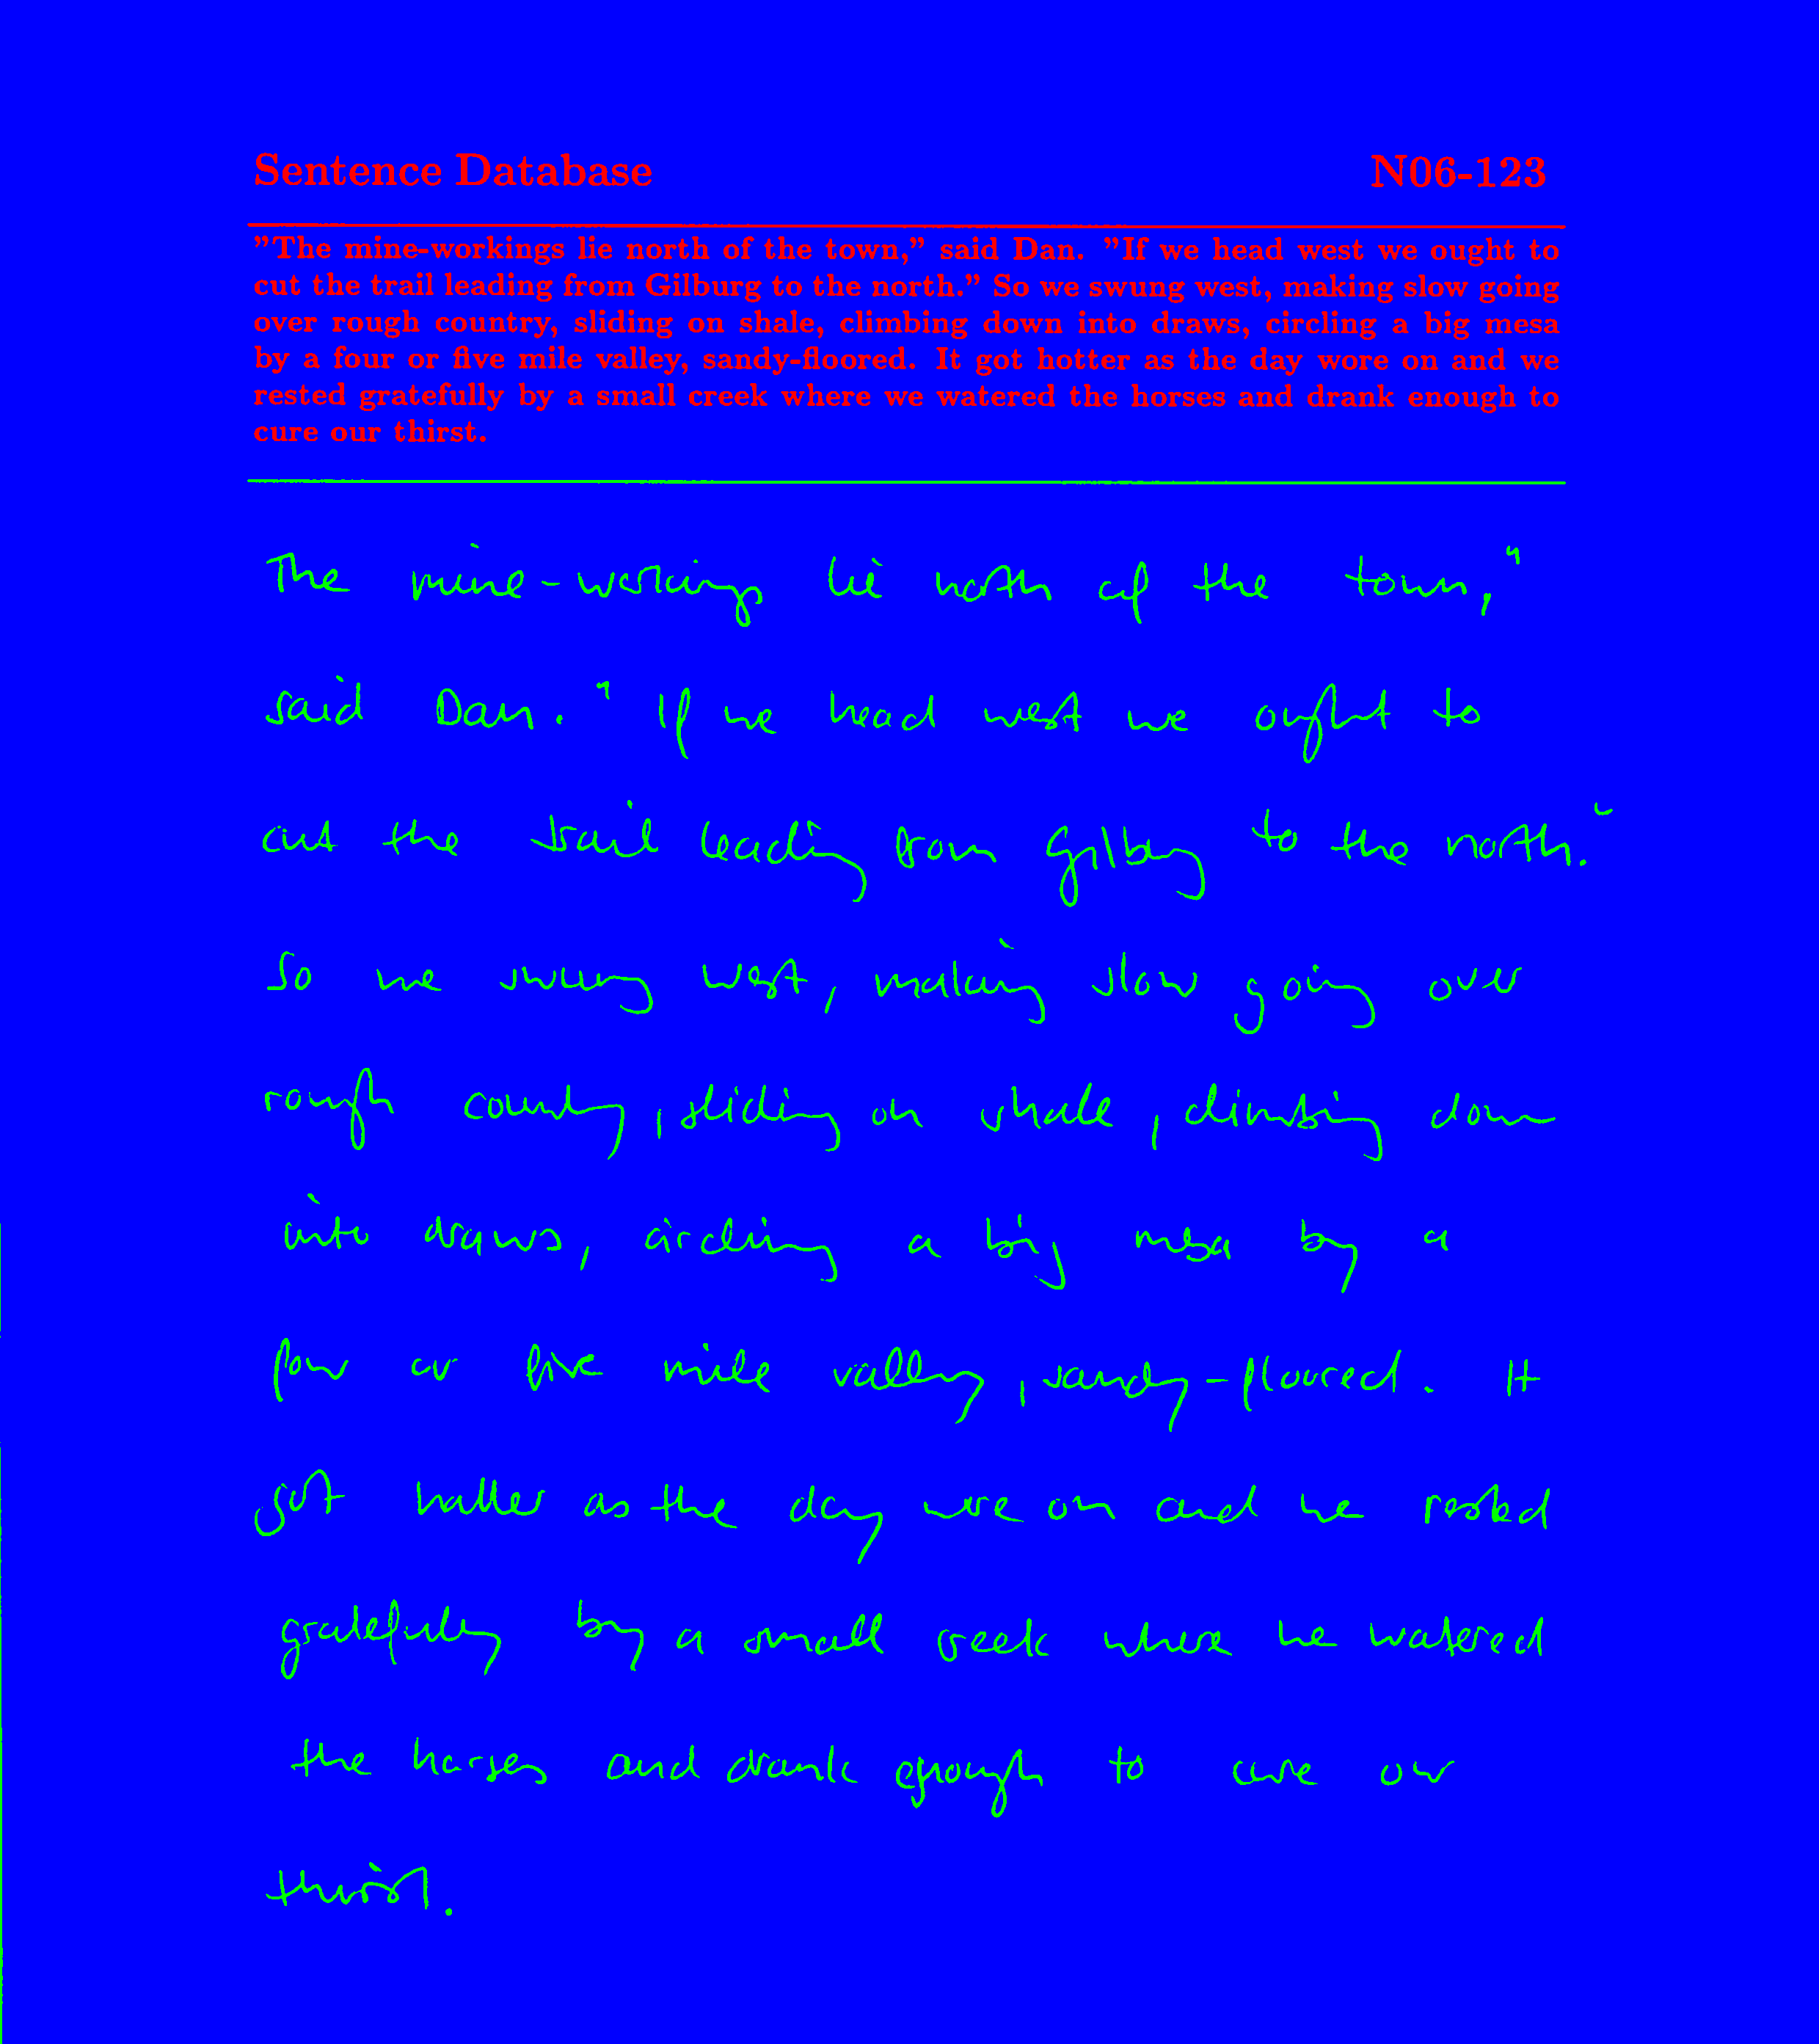 Sentence Database N06-123
"The mine-workings lie north of the town," said Dan. "If we head west we ought to
cut the trail leading from Gilburg to the north." So we swung west, making slow going
over rough country, sliding on shale, climbing down into draws, circling a big mesa
by a four or five mile valley, sandy-floored. It got hotter as the day wore on and we
rested gratefully by a small creek where we watered the horses and drank enough to
cure our thirst.
The mine-workings lie north of the town,"
said Dan. "If we head west we ought to
cut the trail leading from Gilburg to the north."
So we swung west, making slow going over
rough country, sliding on shale, climbing down
into draws, circling a big mesa by a
four or five mile valley, sandy-floored. It
got hotter as the day wore on and we rested
gratefully by a small creek where we watered
the horses and drank enough to cure our
thirst.